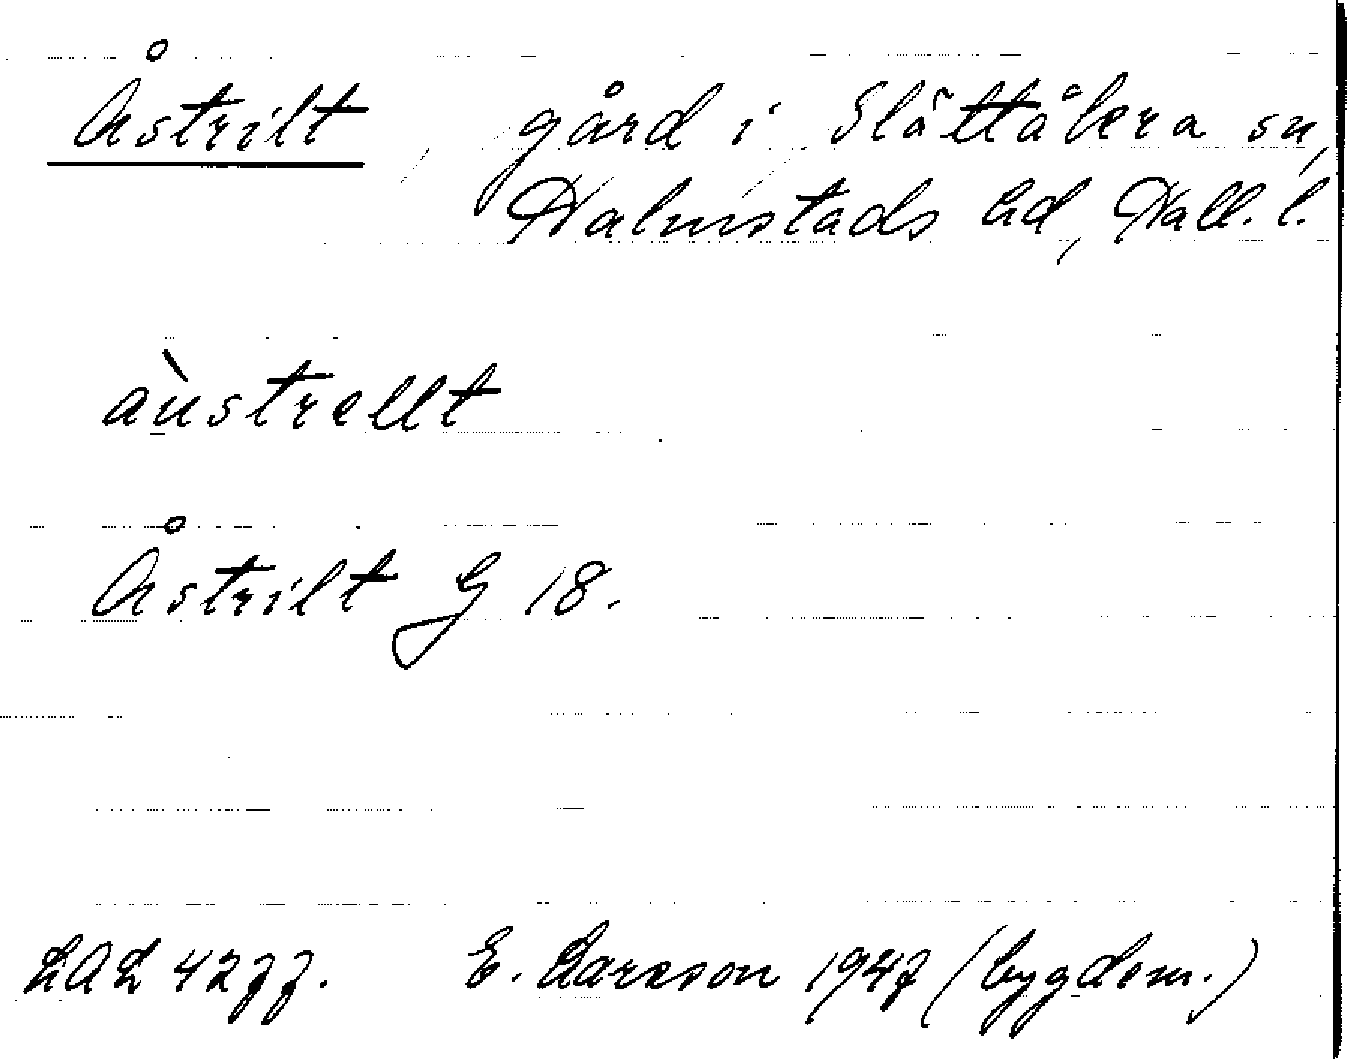 Åstrilt, gård i Slättåkra sn,
Halmstads hd, Hall. l.
àustrellt
Åstrilt G 18.
LAL 4277. E. Larsson 1947 (bygdem.)